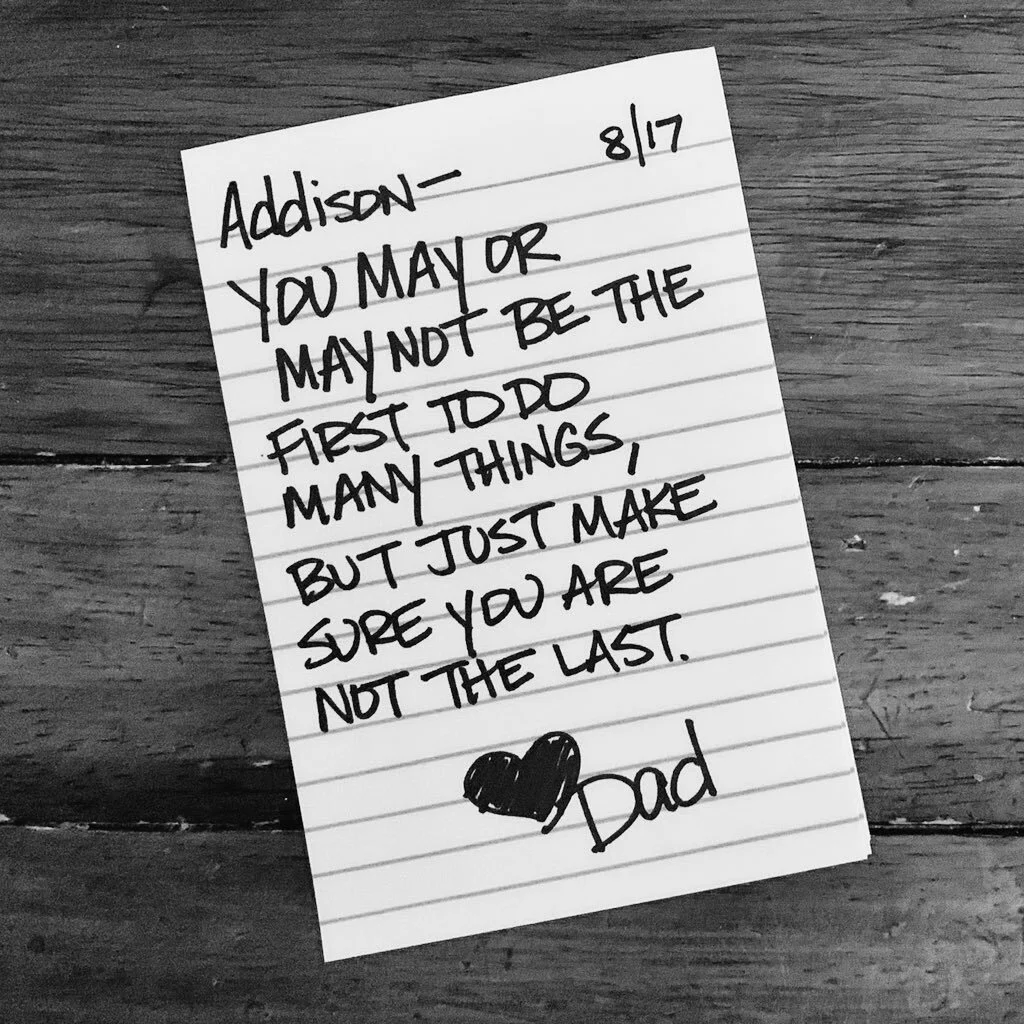 8/17
Addison—
YOU MAY OR
MAY NOT BE THE
FIRST TO DO
MANY THINGS,
BUT JUST MAKE
SURE YOU ARE
NOT THE LAST.
♥ Dad